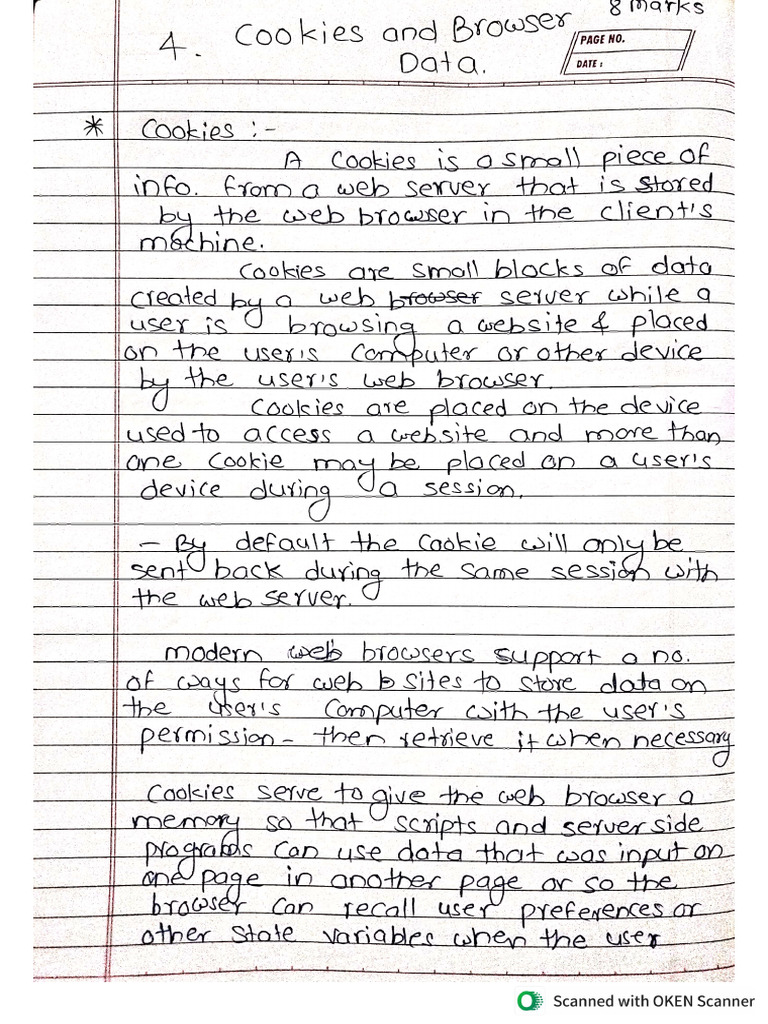 8 Marks
4. Cookies and Browser
Data.
PAGE NO.
DATE :
* Cookies :-
A Cookies is a small piece of
info. from a web server that is stored
by the web browser in the client's
machine.
Cookies are small blocks of data
created by a web browser server while a
user is browsing a website & placed
on the user's computer or other device
by the user's web browser.
Cookies are placed on the device
used to access a website and more than
one cookie may be placed on a user's
device during a session.
- By default the cookie will only be
sent back during the same session with
the web server.
modern web browsers support a no.
of ways for web b sites to store data on
the user's computer with the user's
permission - then retrieve it when necessary
Cookies serve to give the web browser a
memory so that scripts and server side
programs can use data that was input on
one page in another page or so the
browser can recall user preferences or
other state variables when the user
Scanned with OKEN Scanner